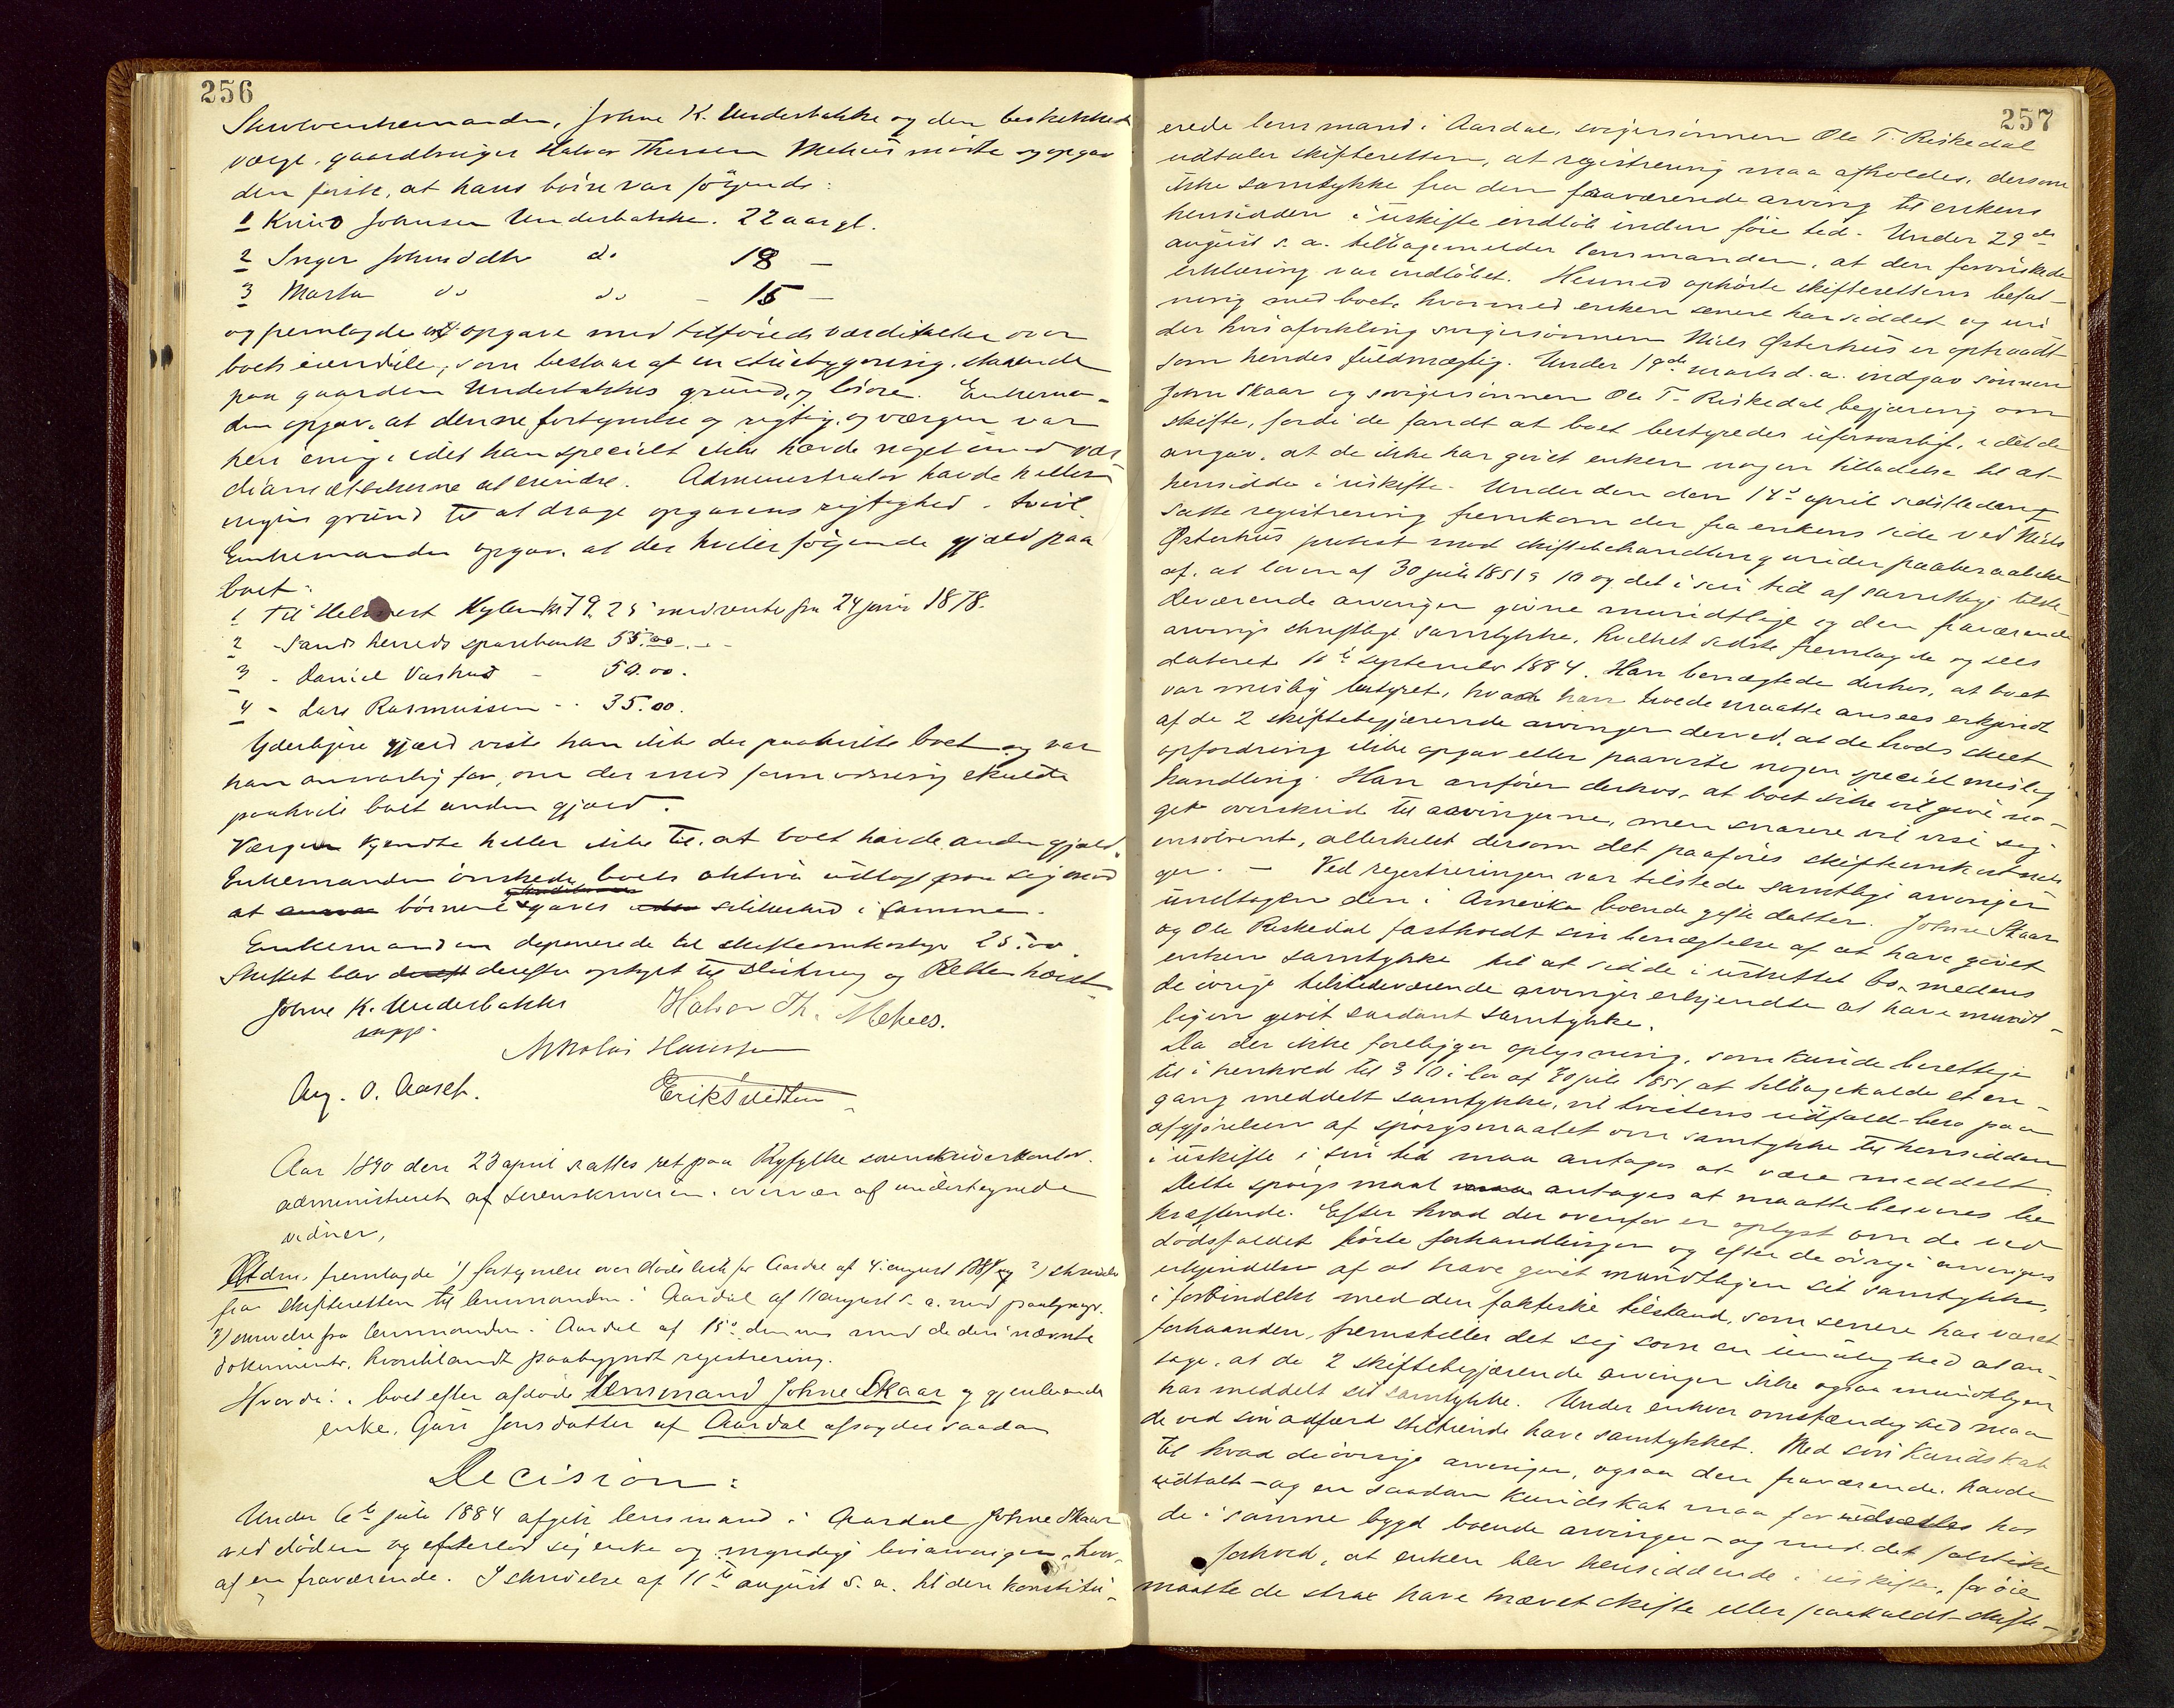 256
Enkemanden, Johne K. Underbakke og den beskikkede
værge, gaardbruger Halvor Thorsen Mehus mødte og opgav
den første, at hans børn var følgende:
1 Knud Johnsen Underbakke. 22 aar gl.
2 Inger Johnsdtr do 18 —
3 Marta do do - 15 —
og fremlagde en opgave med tilføiede værditakster over
boets eiendele, som bestaar af en stuebygning, staaende
paa gaarden Underbakkes grund, og løsøre. Enkeman-
den opgav, at denne fortegnelse og rigtig, og værgen var
heri enig, idet han specielt ikke havde noget imod vær
diansættelserne at erindre. Administrator havde hellerei
nogen grund til at drage opgavens rigtighed i tvivl.
Enkemanden opgav, at der hviler følgende gjæld paa
boet:
1 Til Helmert Kylen kr 79.25 med rente fra 24 juni 1878.
2 - Sands herreds sparebank 55.00 - . -
3 - Daniel Vashus - 50.00.
4 - Lars Rasmussen - - 35.00.
Yderligere gjæld viste han ikke der paahvilte boet og var
han ansvarlig for, om der mod formodning skulde
paahvile boet anden gjæld.
Værgen kjendte heller ikke til, at boet havde anden gjæld.
Enkemanden ønskede boets aktiva udlagt paa sig mod
at børnene gaves sikkerhed i samme.
Enkemanden deponerede til skifteomkostninger 25.00
Skiftet blev derefter optaget til slutning og Retten hævet
Johne K. Underbakke Halvor Th. Mehus.
Nikolai Hanssen
Aug. O. Aasef. Erik Svidten
Aar 1890 den 23 april sattes ret paa Ryfylke sorenskriverkontor.
administreret af sorenskriveren i overvær af undertegnede
vidner,
Adm. fremlagde 1) fortegnelse over dødsledt for Aardal af 4. august 1884 og 2) skrivelse
fra skifteretten til lensmanden i Aardal af 11 august s. a. med paategnr.
3) skrivelse fra lensmanden i Aardal af 15. dennes med de deri nævnte
dokumenter, hvoriblandt paabegyndt registrering.
Hvorda i boet efter afdøde lensmand Johne Skaar og gjenlevende
enke, Guri Jonsdatter af Aardal afsagdes saadan
Decision:
Under 6te juli 1884 afgik lensmand i Aardal Johne Skaar
ved døden og efterlod sig enke og myndige livsarvinger, hvor-
af en fraværende. I skrivelse af 11te august s. a. til den konstitu-
257
erede lensmand i Aardal, svigersønnen Ole T. Riskedal
udtaler skifteretten, at registrering maa afholdes, dersom
ikke samtykke fra den fraværende arving til enkens
hensidden i uskifte indløb inden føie tid. Under 29de
august s. a. tilbagemelder lensmanden, at den forønskede
erklæring var indløbet. Hermed ophørte skifterettens befat-
ning med boet, hvormed enken senere har siddet og un
der hvis afvikling svigersønnen Niels Østerhus er optraadt
som hendes fuldmægtig. Under 19de marts d. a. indgav sønnen
John Skaar og svigersønnen Ole T. Riskedal begjæring om
skifte, fordi de fandt at boet bestyredes uforsvarligt, idet de
angav, at de ikke har givet enken nogen tilladelse til at
hensidde i uskifte. Under den den 14de april sidstleden
satte registrering fremkom der fra enkens side ved Niels
Østerhus protest mod skiftebehandling under paaberaabelse
af, at loven af 30 juli 1851 § 10 og det i sin tid af samtlige tilste
deværende arvinger givne mundtlige og den fraværende
arvings skriftlige samtykke, hvilket sidste fremlagde og sees
dateret 10de september 1884. Han benægtede derhos, at boet
var mislig bestyret, hvad han troede maatte ansees erkjendt
af de 2 skiftebegjærende arvinger derved, at de trods skeet
opfordring ikke opgav eller paaviste nogen speciel mislig
handling. Han anfører derhos, at boet ikke vil give no-
get overskud til arvingerne, men snarere vil vise sig
insolvent, allerhelst dersom det paaføres skifteomkostnin
ger. — Ved registreringen var tilstede samtlige arvinger
undtagen den i Amerika boende gifte datter. Johne Skaar
og Ole Riskedal fastholdt sin benægtelse af at have givet
enken samtykke til at sidde i uskiftet bo, medens
de øvrige tilstedeværende arvinger erkjendte at have mundt-
ligen givet saadant samtykke.
Da der ikke foreligger oplysning, som kunde berettige
til i henhold til § 10 i lov af 30 juli 1851 at tilbagekalde et en-
gang meddelt samtykke, vil tvistens udfald bero paa
afgjørelsen af spørgsmaalet om samtykke til hensidden
i uskifte i sin tid maa antages at være meddelt.
Dette spørgsmaal antages at maatte besvares be
kræftende. Efter hvad der ovenfor er oplyst om de ved
dødsfaldet førte forhandlinger og efter de øvrige arvingers
erkjendelse af at have givet mundtligen sit samtykke,
i forbindelse med den faktiske tilstand, som senere har været
forhaanden, fremstiller det sig som en umulighed at an-
tage, at de 2 skiftebegjærende arvinger ikke ogsaa mundtligen
har meddelt sit samtykke. Under enhver omstændighed maa
de ved sin adfærd stiltiende have samtykket. Med sin kundskab
til hvad de øvrige arvinger, ogsaa den fraværende, havde
udtalt - og en saadan kundskab maa forudsættes hos
de i samme bygd boende arvinger - og med det faktiske
forhold, at enken blev hensiddende i uskifte, for øie
maatte de strax have krævet skifte eller paakaldt skifte-